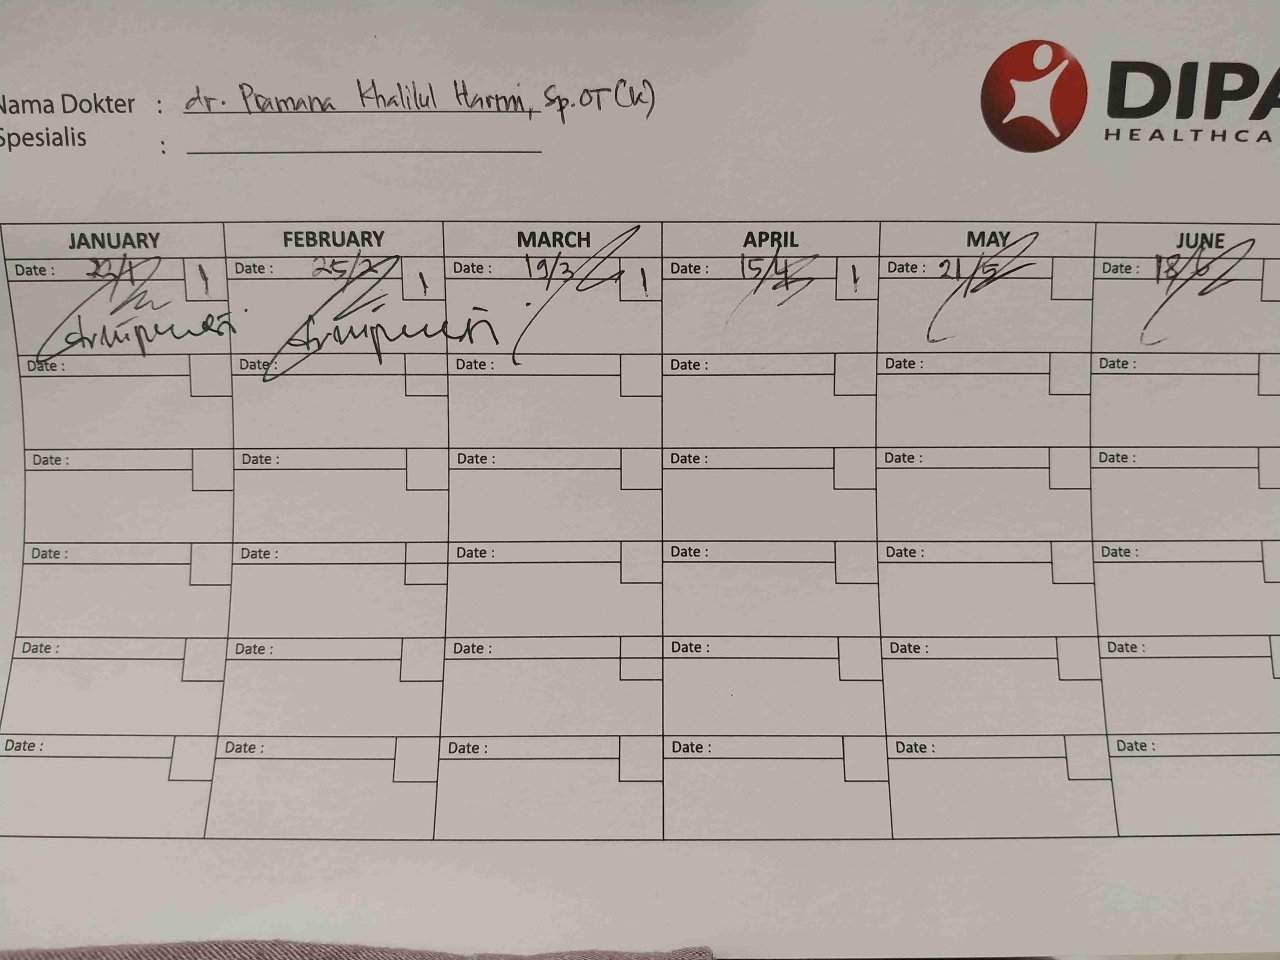 Nama Dokter : dr. Pramana Khalilul Harmi, Sp.OT(K)
Spesialis :
DIPA
HEALTHCA
JANUARY FEBRUARY MARCH APRIL MAY JUNE
Date : 23/1 1 Date : 25/2 1 Date : 19/3 1 Date : 15/4 1 Date : 21/5 Date : 18/6
Date : Date : Date : Date : Date : Date :
Date : Date : Date : Date : Date : Date :
Date : Date : Date : Date : Date : Date :
Date : Date : Date : Date : Date : Date :
Date : Date : Date : Date : Date : Date :